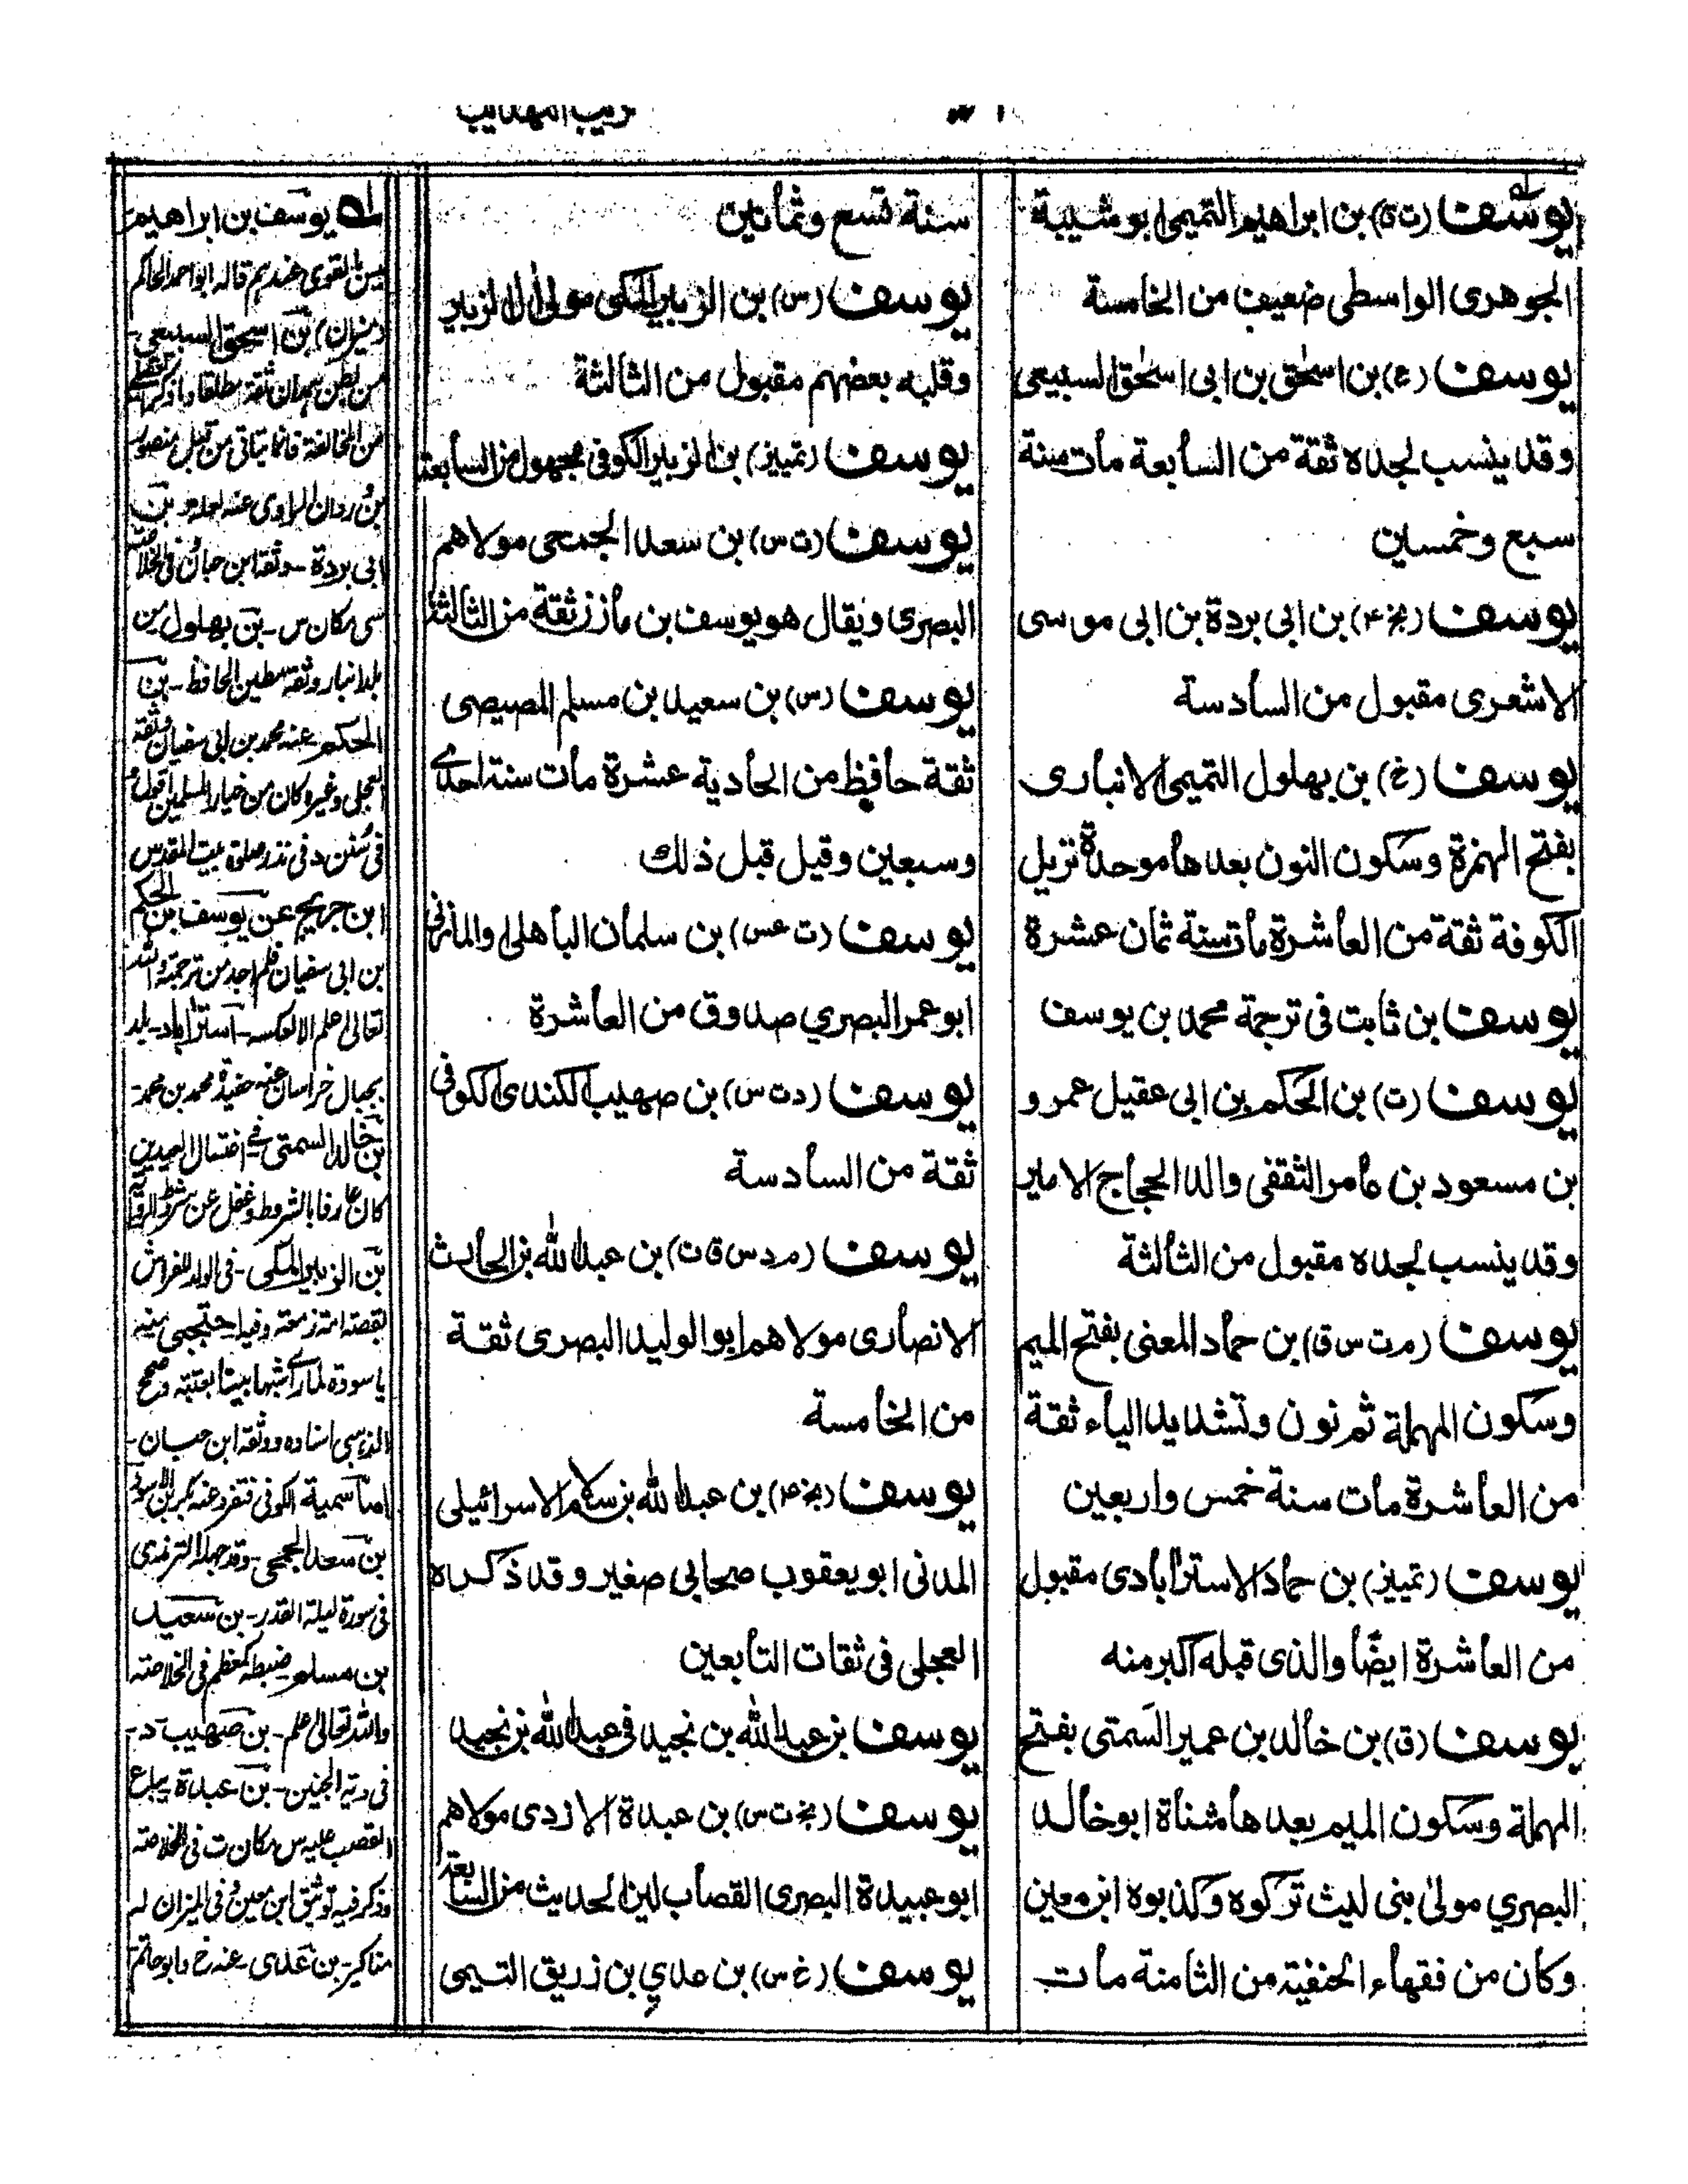 تقريب التهذيب
يوسف (ت ق) بن ابراهيم التميمى ابو شيبة
الجوهرى الواسطى ضعيف من الخامسة
يوسف (ع) بن اسحٰق بن ابى اسحٰق السبيعى
وقد ينسب لجده ثقة من السابعة مات سنة
سبع وخمسين
يوسف (بخ ۴) بن ابى بردة بن ابى موسى
الاشعرى مقبول من السادسة
يوسف (خ) بن بهلول التميمى الانبارى
بفتح الهمزة وسكون النون بعدها موحدة نزيل
الكوفة ثقة من العاشرة مات سنة ثمان عشرة
يوسف بن ثابت فى ترجمة محمد بن يوسف
يوسف (ت) بن الحكم بن ابى عقيل عمرو
بن مسعود بن عامر الثقفى والد الحجاج الامير
وقد ينسب لجده مقبول من الثالثة
يوسف (م ت س ق) بن حماد المعنى بفتح الميم
وسكون المهملة ثم نون وتشديد الياء ثقة
من العاشرة مات سنة خمس واربعين
يوسف (تمييز) بن حماد الاسترآبادى مقبول
من العاشرة ايضًا والذى قبله اكبر منه
يوسف (ق) بن خالد بن عمير السَمتى بفتح
المهملة وسكون الميم بعدها مثناة ابو خالد
البصري مولىٰ بنى ليث تركوه وكذبوه ابن معين
وكان من فقهاء الحنفية من الثامنة مات
سنة تسع وثمانين
يوسف (س) بن الزبير المكى مولى اٰل الزبير
وقلبه بعضهم مقبول من الثالثة
يوسف (تمييز) بن الزبير الكوفى مجهول من السابعة
يوسف (ت س) بن سعد الجمحى مولاهم
البصرى ويقال هو يوسف بن مازن ثقة من الثالثة
يوسف (س) بن سعيد بن مسلم المصيصى
ثقة حافظ من الحادية عشرة مات سنة احدى
وسبعين وقيل قبل ذلك
يوسف (ت عس) بن سلمان الباهلى او المازنى
ابو عمر البصري صدوق من العاشرة
يوسف (د ت س) بن صهيب الكندى الكوفى
ثقة من السادسة
يوسف (م د س ق ت) بن عبد الله بن الحارث
الانصارى مولاهم ابو الوليد البصرى ثقة
من الخامسة
يوسف (بخ ۴) بن عبد الله بن سلام الاسرائيلى
المدنى ابو يعقوب صحابى صغير وقد ذكره
العجلى فى ثقات التابعين
يوسف بن عبد الله بن نجيد فى عبد الله بن نجيد
يوسف (بخ ت س) بن عبدة الازدى مولاهم
ابو عبيدة البصرى القصاب لين الحديث من السابعة
يوسف (خ س) بن عدي بن زريق التيمى
يوسف بن ابراهيم
ليس بالقوى عندهم قاله ابو احمد الحاكم
(ميزان) بن اسحق السبيعى
من بطن همدان ثقة مطلقا وما ذكر العقيلى
من المخالفة فانما تتاتى من قبل منصور
بن وردان الراوى عنه بن
ابى بردة - وثقه ابن حبان وفى الخلاصة
س - بن بهلول من
بلد انبار وثقه مطين الحافظ - بن
الحكم عنه محمد بن ابى سفيان وثقه
العجلى وغيره كان من خيار المسلمين اقول
فى سنن د فى نذر صلوة بيت المقدس
ابن جريج عن يوسف بن الحكم
بن ابى سفيان فلم اجد من ترجمته والله
تعالى اعلم استراباد - بلد
بجبال خراسان عنه حفيده محمد بن محمد
بن خالد السمتى فى اغتسال العيدين
كان عارفا بالشروط وغفل عن شروط الرواية
بن الزبير المكى - فى الولد للفراش
لقصة امة زمعة وفيه احتجبى منه
يا سودة لما راى شبها بينا بعتبة وصحح
الذهبى اسناده ووثقه ابن حبان -
اما سميه الكوفى فتفرد عنه
بن سعد الجمحى - وقد جهله الترمذى
فى سورة ليلة القدر - بن سعيد
بن مسلم - ضبطه كمعظم فى الخلاصة
والله تعالى اعلم - بن صهيب - د -
فى دية الجنين - بن عبدة يباع
القصب عليه س مكان ت فى الخلاصة
وذكر فيه توثيق ابن معين وفى الميزان له
مناكير - بن عدى - عنه خ وابو حاتم